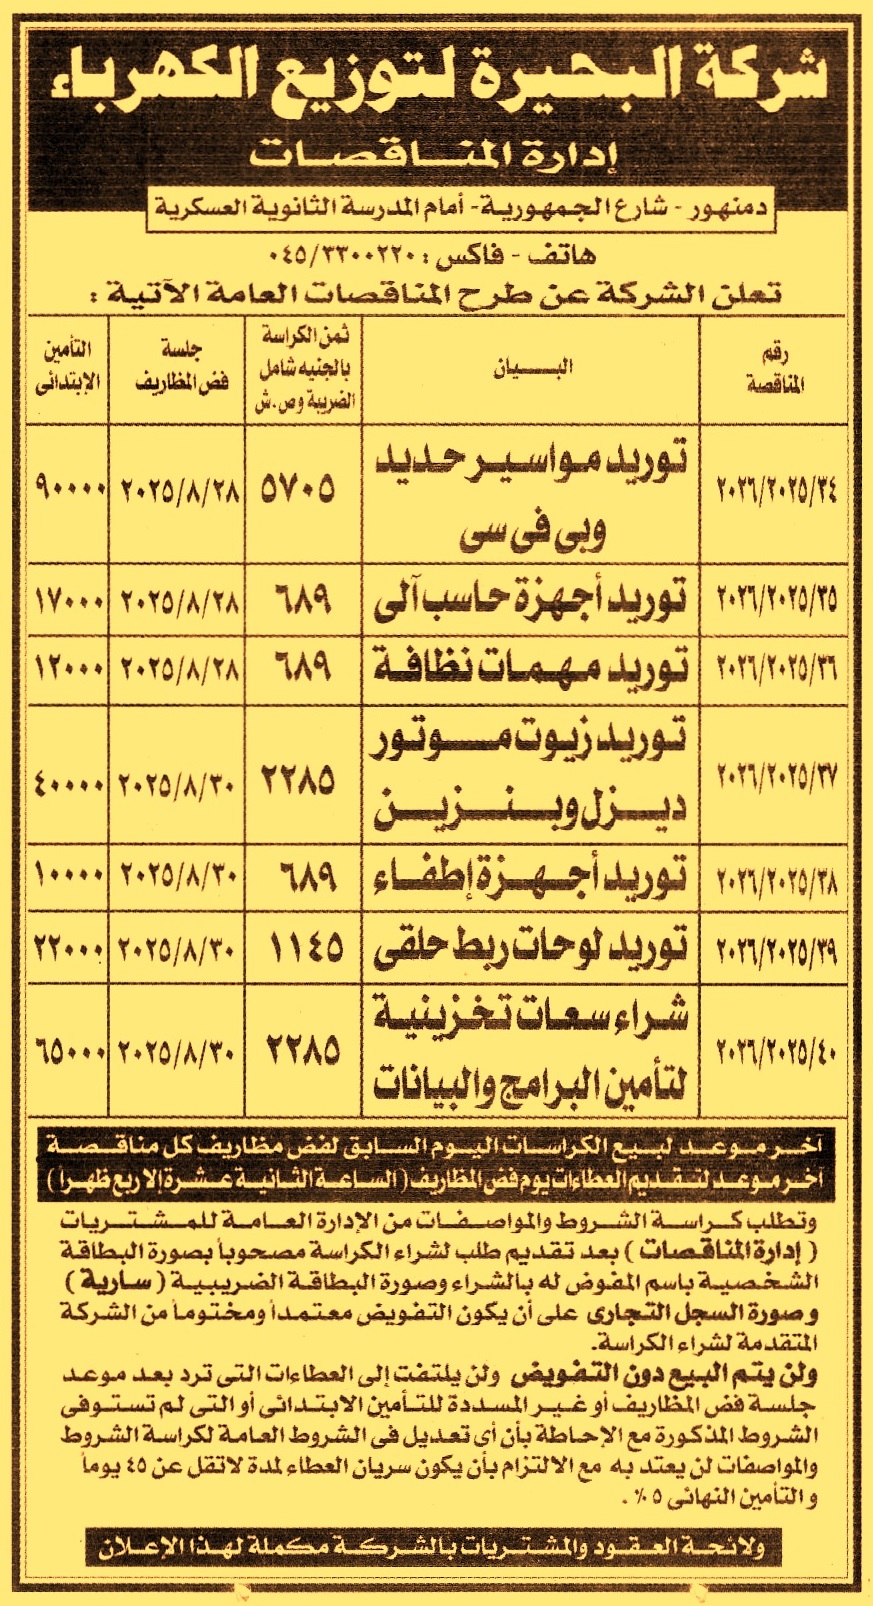 شركة البحيرة لتوزيع الكهرباء
إدارة المناقصات
دمنهور - شارع الجمهورية - أمام المدرسة الثانوية العسكرية
هاتف - فاكس : ٠٤٥/٣٣٠٠٢٢٠
تعلن الشركة عن طرح المناقصات العامة الآتية :
رقم المناقصة | البيان | ثمن الكراسة بالجنيه شامل الضريبة وص.ش | جلسة فض المظاريف | التأمين الإبتدائى
٢٠٢٦/٢٠٢٥/٣٤ | توريد مواسير حديد وبى فى سى | ٥٧٠٥ | ٢٠٢٥/٨/٢٨ | ٩٠٠٠٠
٢٠٢٦/٢٠٢٥/٣٥ | توريد أجهزة حاسب آلى | ٦٨٩ | ٢٠٢٥/٨/٢٨ | ١٧٠٠٠
٢٠٢٦/٢٠٢٥/٣٦ | توريد مهمات نظافة | ٦٨٩ | ٢٠٢٥/٨/٢٨ | ١٢٠٠٠
٢٠٢٦/٢٠٢٥/٣٧ | توريد زيوت موتور ديزل وبنزين | ٢٢٨٥ | ٢٠٢٥/٨/٣٠ | ٤٠٠٠٠
٢٠٢٦/٢٠٢٥/٣٨ | توريد أجهزة إطفاء | ٦٨٩ | ٢٠٢٥/٨/٣٠ | ١٠٠٠٠
٢٠٢٦/٢٠٢٥/٣٩ | توريد لوحات ربط حلقى | ١١٤٥ | ٢٠٢٥/٨/٣٠ | ٢٢٠٠٠
٢٠٢٦/٢٠٢٥/٤٠ | شراء سعات تخزينية لتأمين البرامج والبيانات | ٢٢٨٥ | ٢٠٢٥/٨/٣٠ | ٦٥٠٠٠
آخر موعد لبيع الكراسات اليوم السابق لفض مظاريف كل مناقصة
آخر موعد لتقديم العطاءات يوم فض المظاريف ( الساعة الثانية عشرة إلا ربع ظهراً )
وتطلب كراسة الشروط والمواصفات من الإدارة العامة للمشتريات
( إدارة المناقصات ) بعد تقديم طلب لشراء الكراسة مصحوباً بصورة البطاقة
الشخصية باسم المفوض له بالشراء وصورة البطاقة الضريبية ( سارية )
وصورة السجل التجارى على أن يكون التفويض معتمداً ومختوماً من الشركة
المتقدمة لشراء الكراسة.
ولن يتم البيع دون التفويض ولن يلتفت إلى العطاءات التى ترد بعد موعد
جلسة فض المظاريف أو غير المسددة للتأمين الابتدائى أو التى لم تستوفى
الشروط المذكورة مع الإحاطة بأن أى تعديل فى الشروط العامة لكراسة الشروط
والمواصفات لن يعتد به مع الالتزام بأن يكون سريان العطاء لمدة لاتقل عن ٤٥ يوماً
والتأمين النهائى ٥٪ .
ولائحة العقود والمشتريات بالشركة مكملة لهذا الإعلان